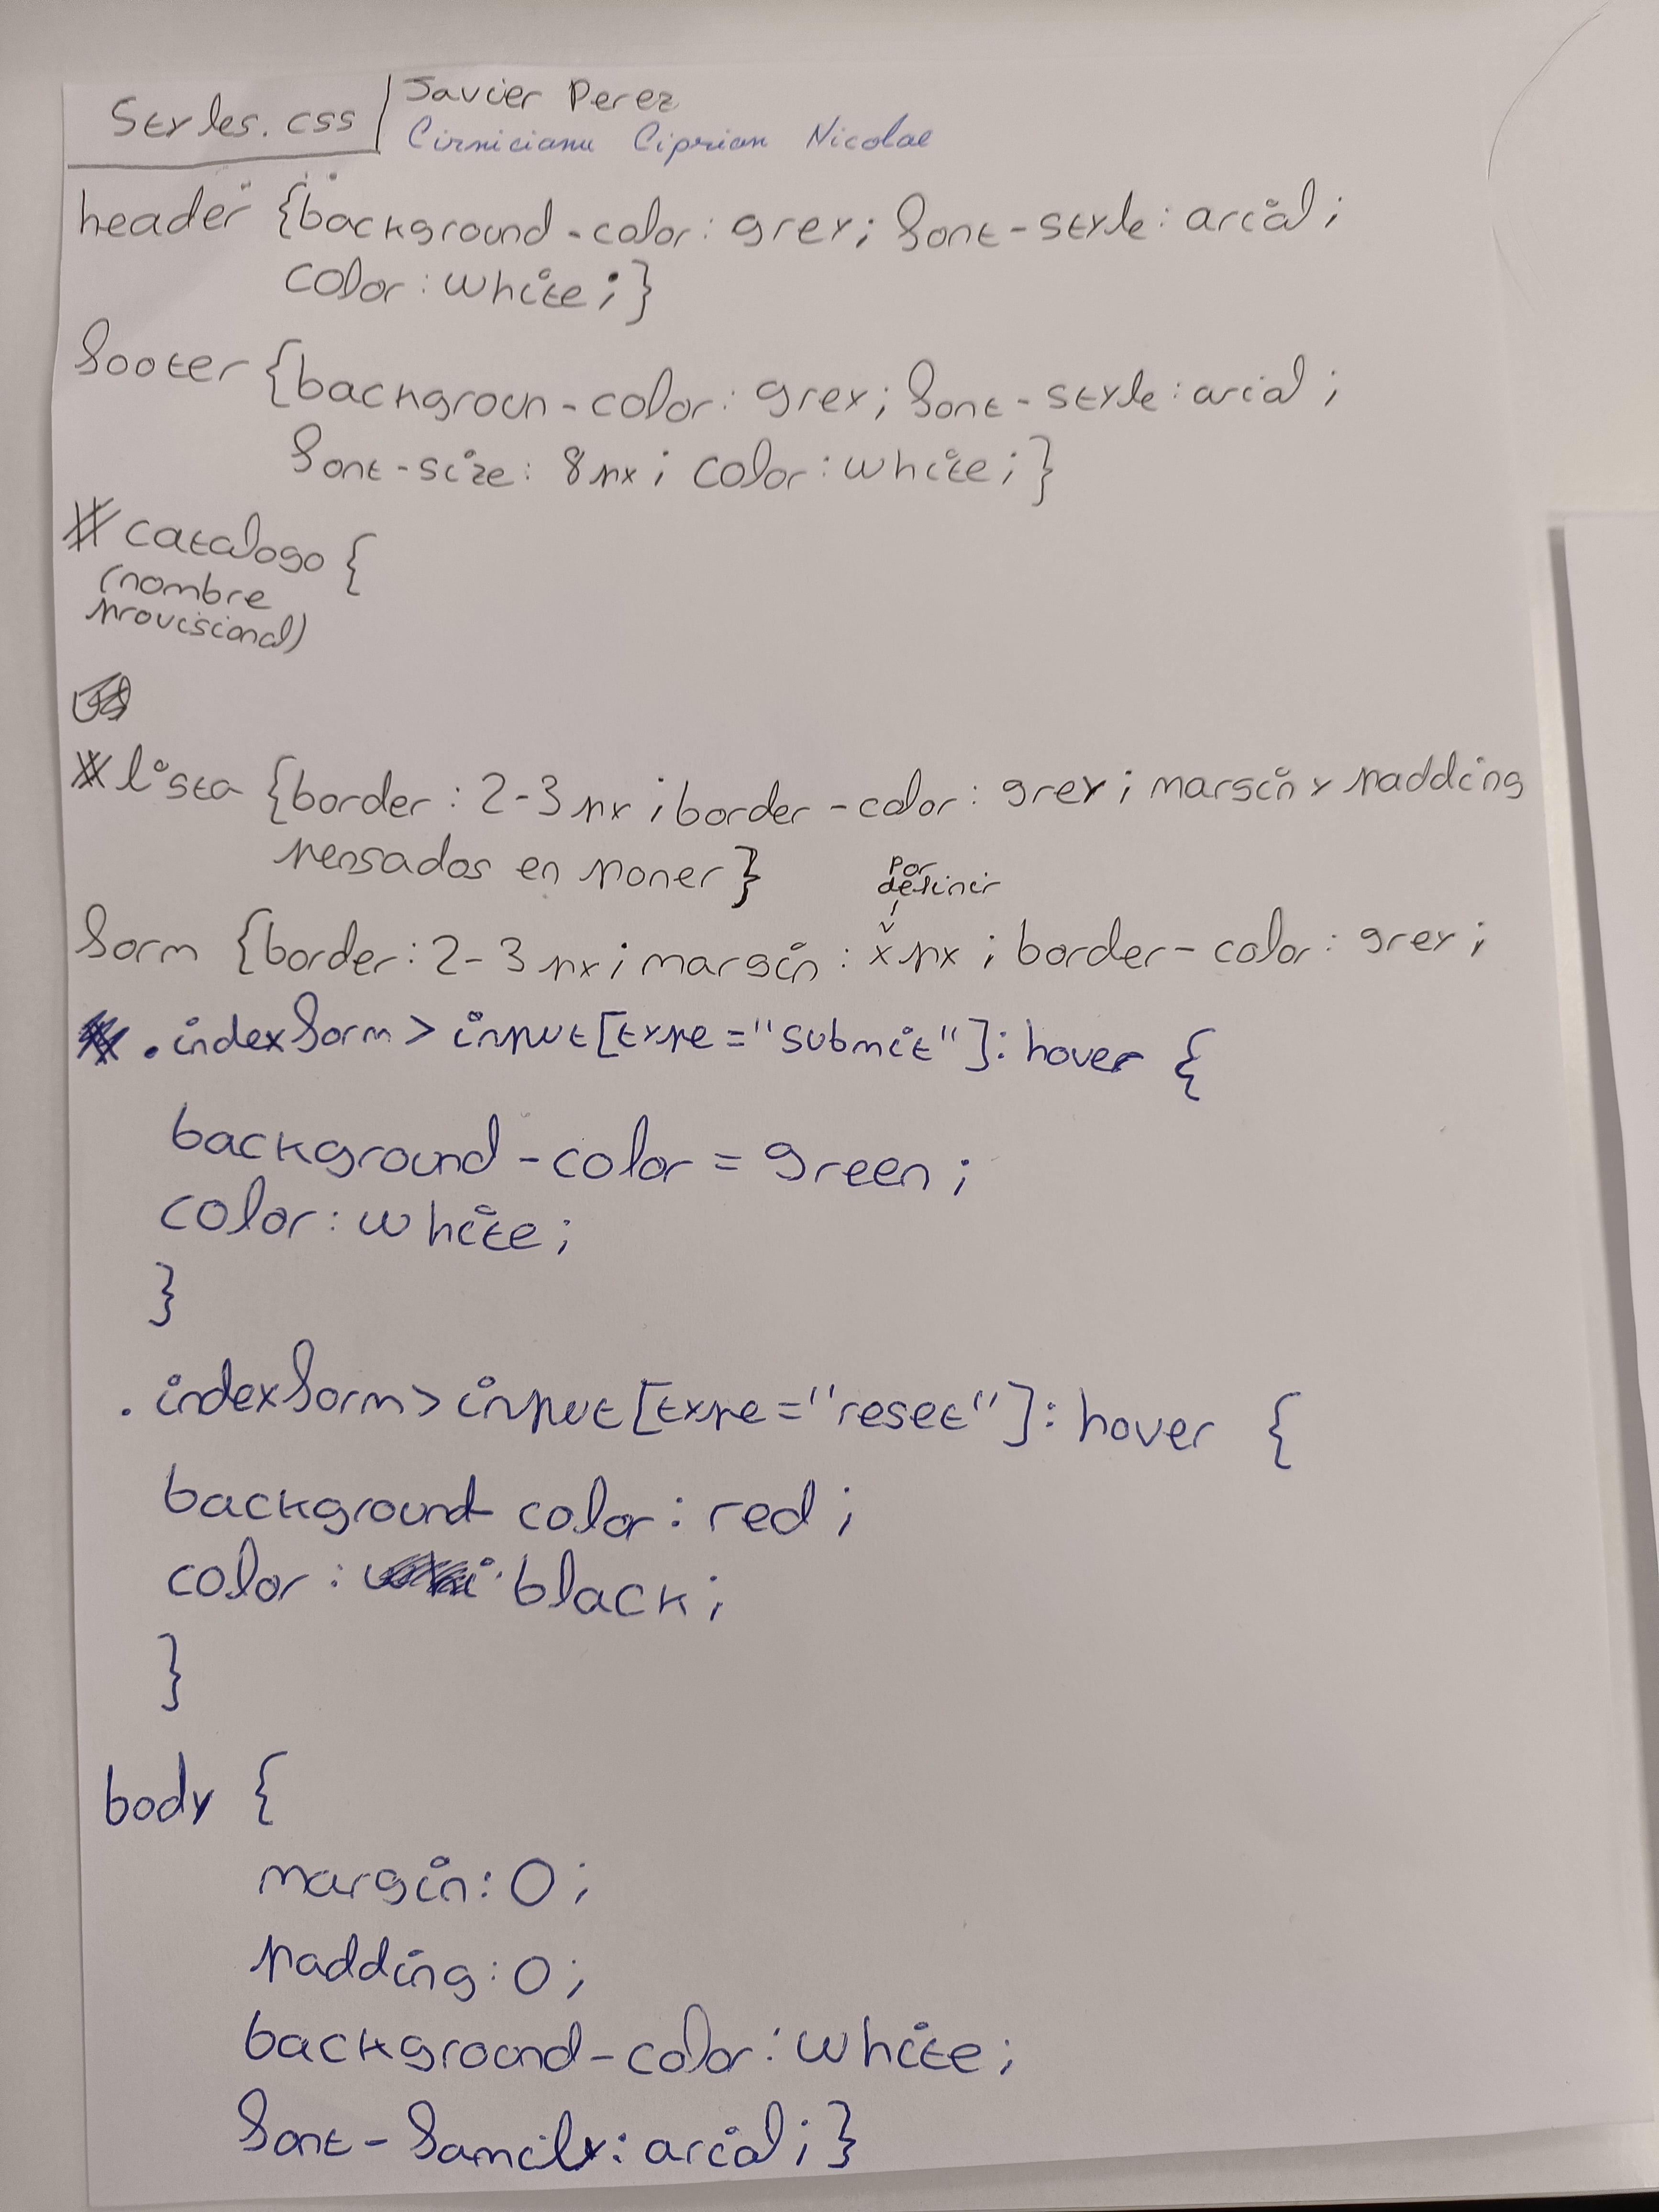 Styles.css | Javier Perez
Cirnicianu Ciprian Nicolae
header {background-color: grey; font-style: arial;
color: white;}
footer {backgroun-color: grey; font-style: arial;
font-size: 8px; color: white;}
#catalogo {
(nombre
provisional)
#lista {border: 2-3px; border-color: grey; margin y padding
pensados en poner}
por
definir
form {border: 2-3px; margin: xpx; border-color: grey;
.indexform > input[type="submit"]:hover {
background-color = green;
color: white;
}
.indexform > input[type="reset"]:hover {
background color: red;
color: black;
}
body {
margin: 0;
padding: 0;
background-color: white;
font-family: arial;}